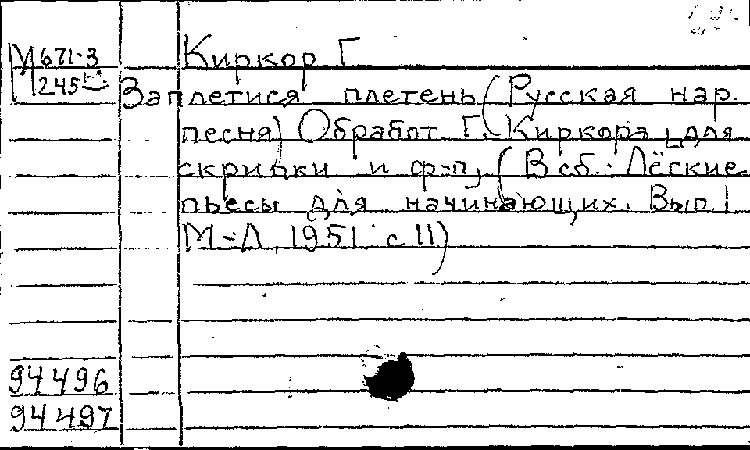 М 671-3
245
Киркор Г
Заплетися плетень (Русская нар.
песня) Обработ. Г. Киркора [для
скрипки и ф-п] (В сб.: Лёгкие
пьесы для начинающих. Вып 1
М-Л, 1951 с 11)
94496
94497